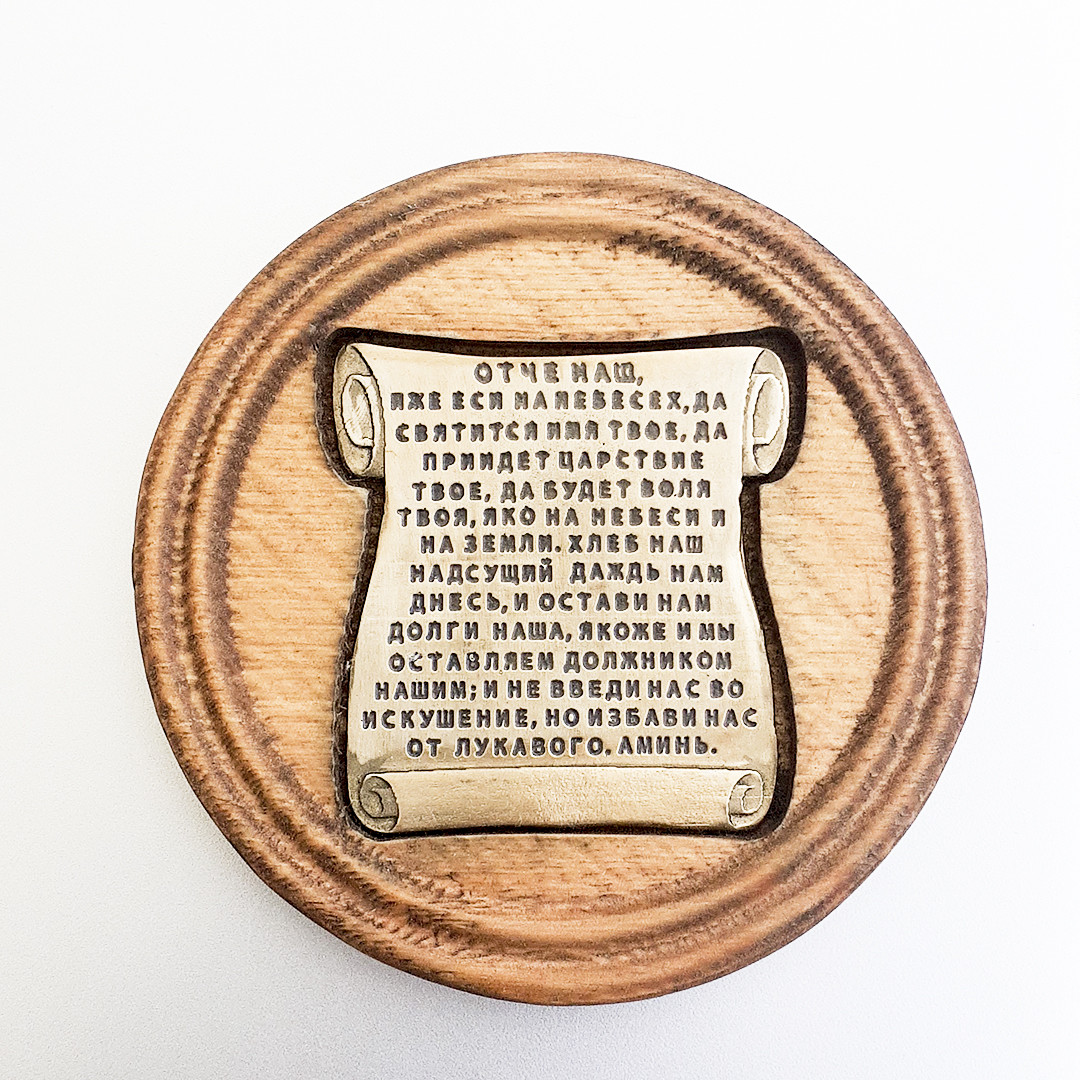 ОТЧЕ НАШ,
ИЖЕ ЕСИ НА НЕБЕСЕХ, ДА
СВЯТИТСЯ ИМЯ ТВОЕ, ДА
ПРИИДЕТ ЦАРСТВИЕ
ТВОЕ, ДА БУДЕТ ВОЛЯ
ТВОЯ, ЯКО НА НЕБЕСИ И
НА ЗЕМЛИ. ХЛЕБ НАШ
НАДСУЩИЙ ДАЖДЬ НАМ
ДНЕСЬ, И ОСТАВИ НАМ
ДОЛГИ НАША, ЯКОЖЕ И МЫ
ОСТАВЛЯЕМ ДОЛЖНИКОМ
НАШИМ; И НЕ ВВЕДИ НАС ВО
ИСКУШЕНИЕ, НО ИЗБАВИ НАС
ОТ ЛУКАВОГО. АМИНЬ.